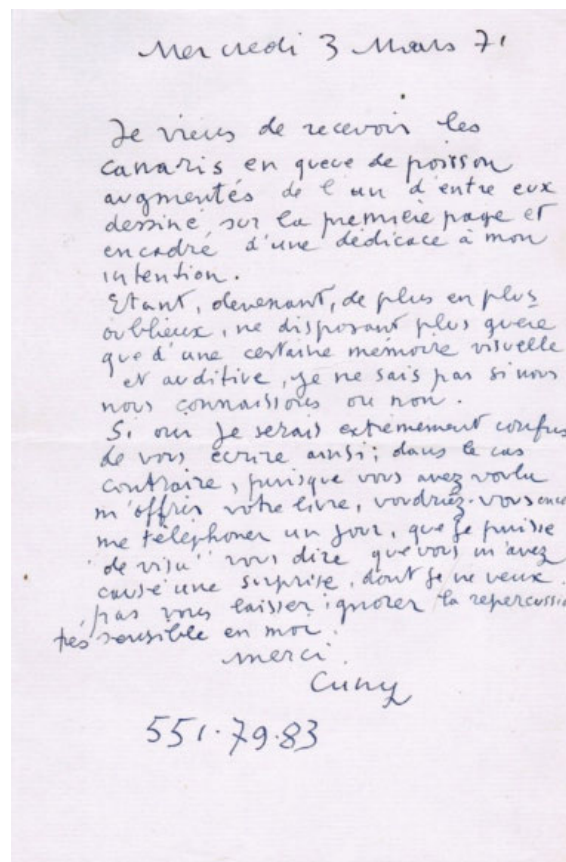 Mercredi 3 Mars 71
Je viens de recevoir les
canaris en queue de poisson
augmentés de l'un d'entre eux
dessiné, sur la première page et
encadré d'une dédicace à mon
intention.
Etant, devenant, de plus en plus
oublieux, ne disposant plus guère
que d'une certaine mémoire visuelle
et auditive, je ne sais pas si nous
nous connaissions ou non.
Si oui je serais extrêmement confus
de vous écrire ainsi; dans le cas
contraire, puisque vous avez voulu
m'offrir votre livre, voudriez-vous
me téléphoner un jour, que je puisse
"de visu" vous dire que vous m'avez
causé une surprise, dont je ne veux
pas vous laisser ignorer la répercussion
très sensible en moi.
Merci.
Cuny
551.79.83